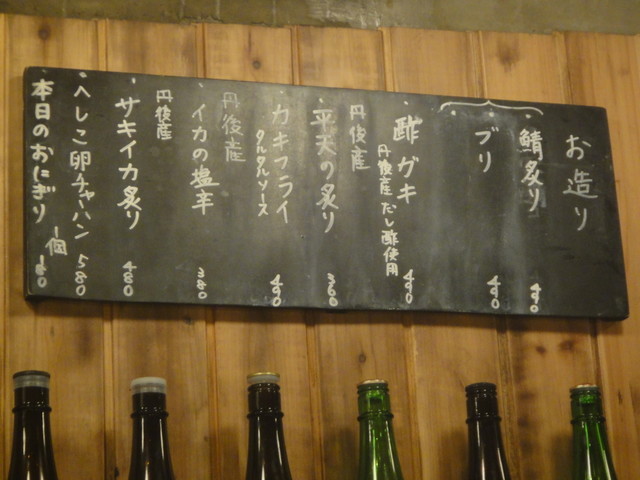 お造り
鯖炙り 490
ブリ 490
酢ガキ 490
丹後産 だし酢使用
丹後産
平天の炙り 360
カキフライ 490
タルタルソース
丹後産
イカの塩辛 380
丹後産
サキイカ炙り 480
へしこ卵チャーハン 580
本日のおにぎり 一個